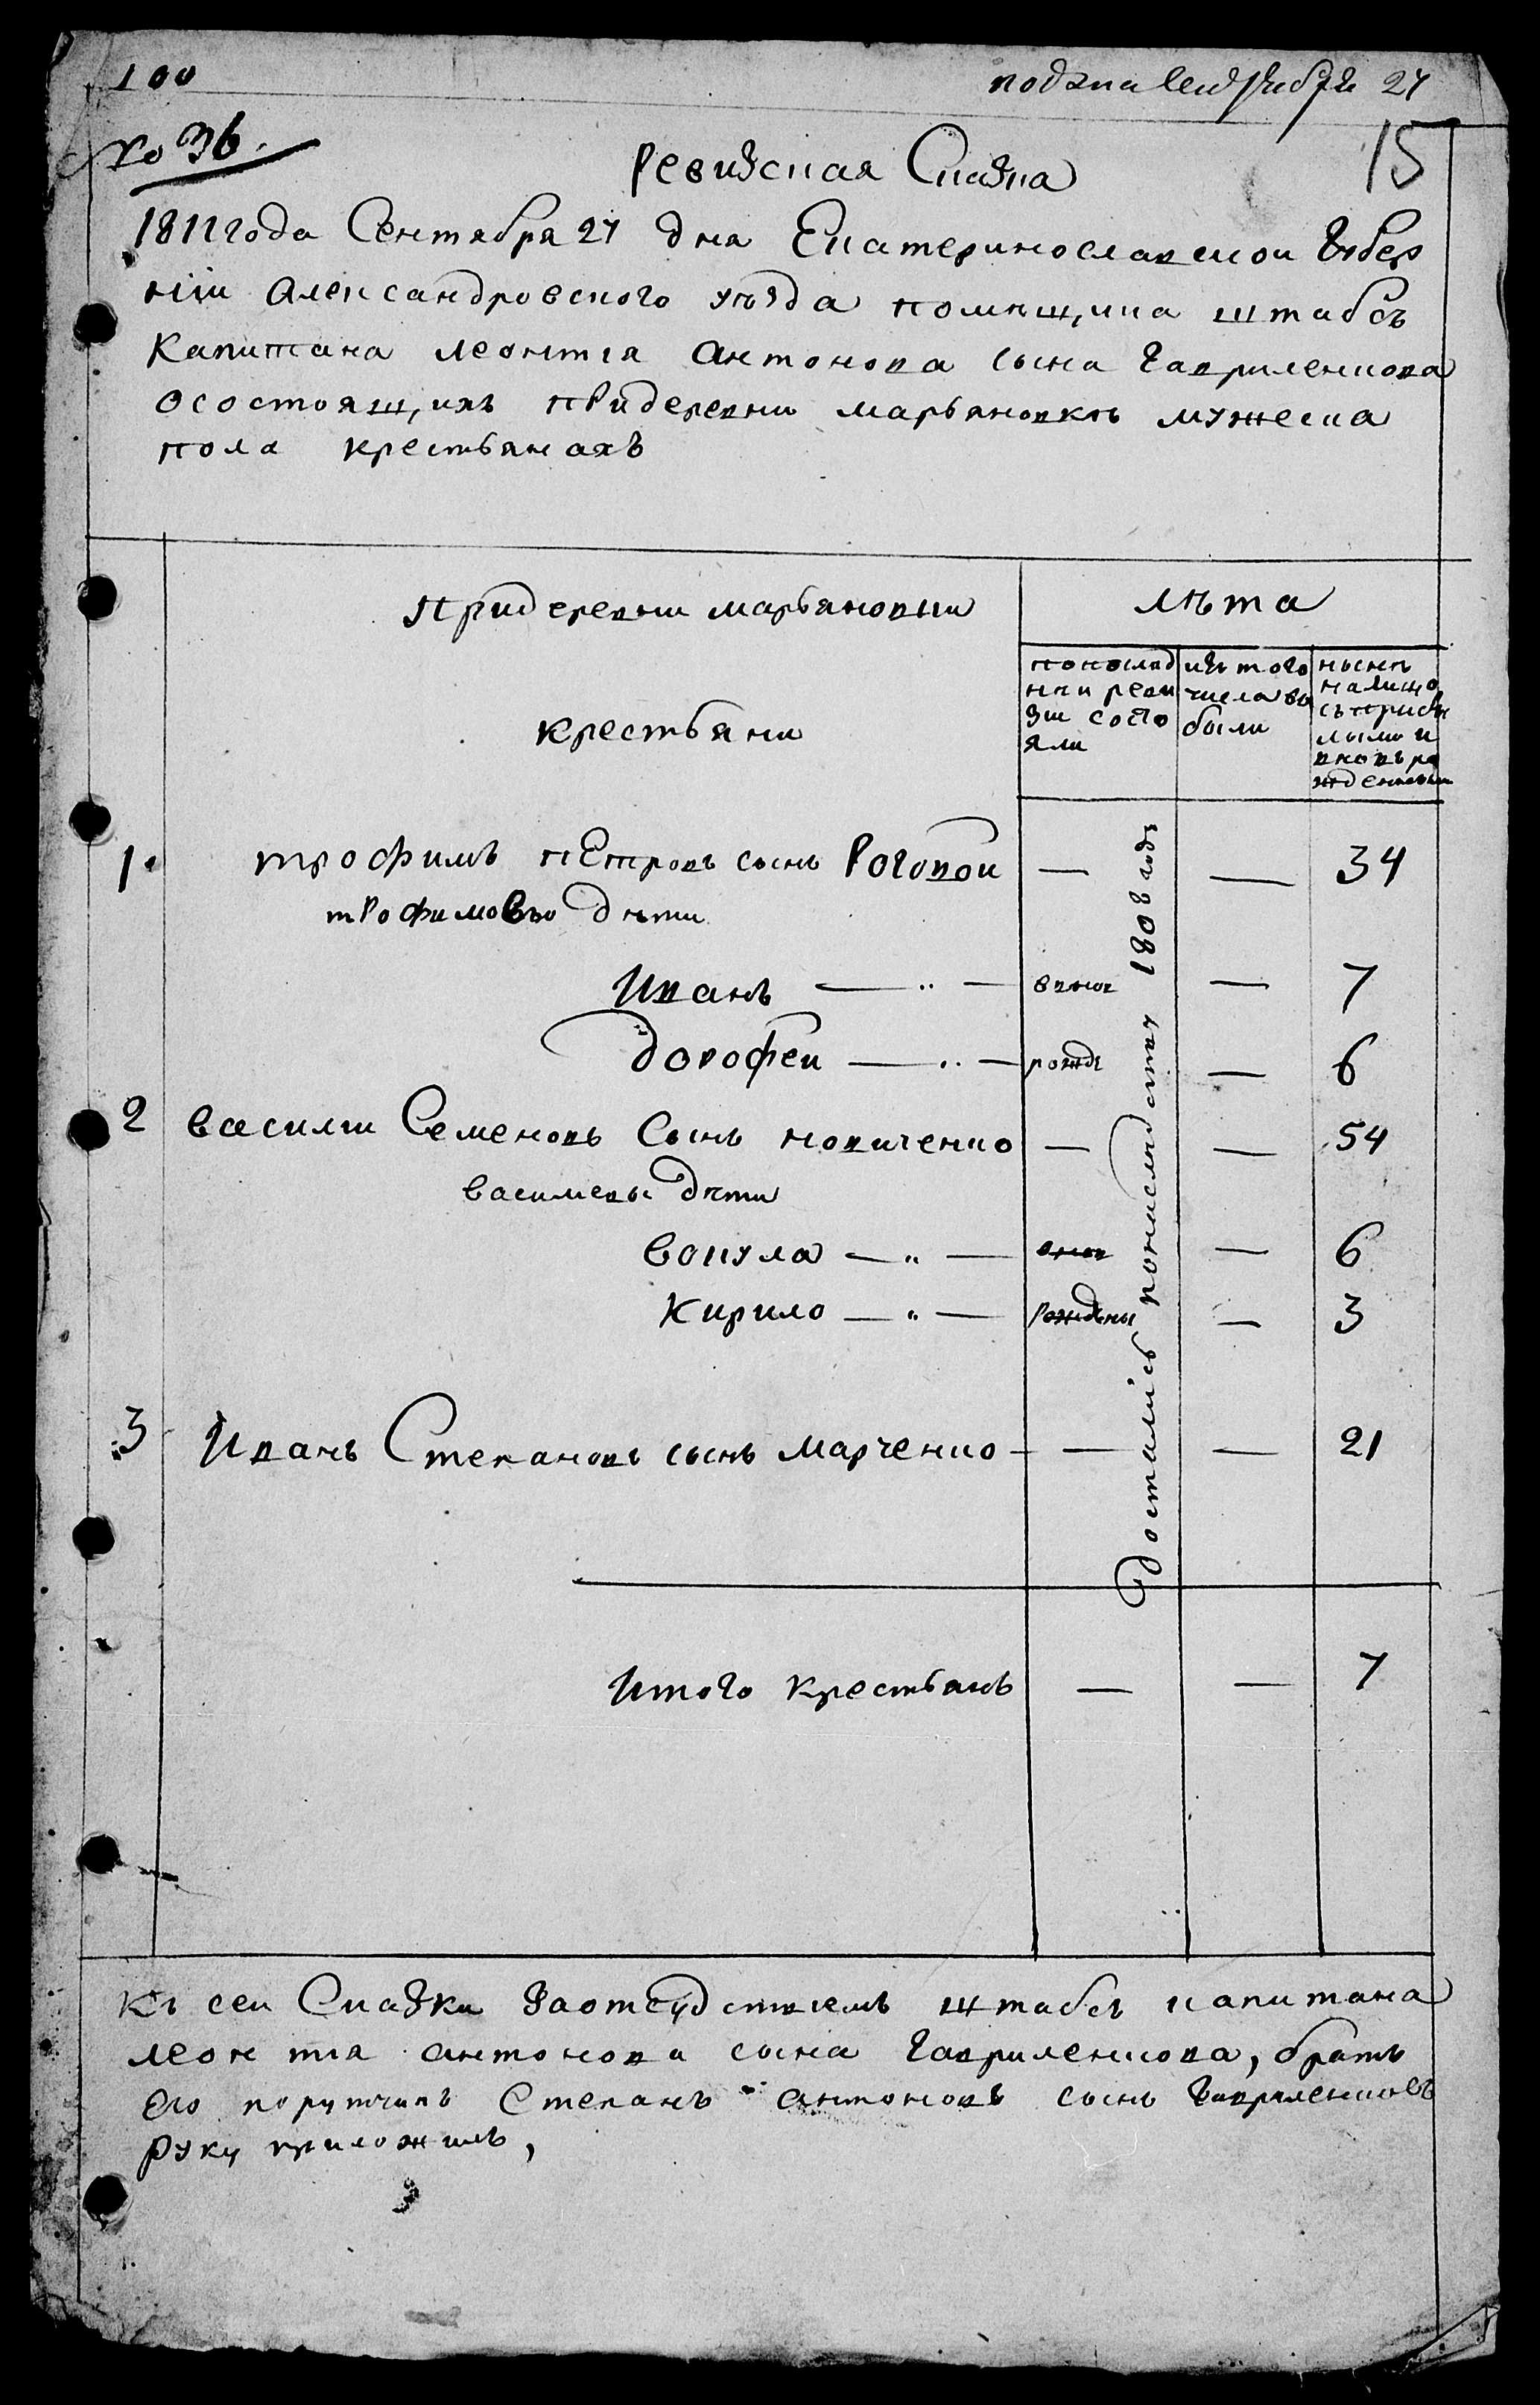 100
подана сентября 27
№ 36.
15
Ревизская Сказка
1811 года Сентября 27 дня Екатеринославской Губер
нїи Александровского уѣзда помѣщика штабсъ
Капитана леонтїя Антонова сына Гавриленкова
Осостоящихъ придеревни марьяновкѣ мужеска
пола крестьянахъ
Придеревни марьяновки
крестьяни
лѣта
попослѣд
нѣи реви
зіи состо
яли
изъ того
числа вы
были
нынѣ
налицо
съ прибы
лыми и
вновъ ро
жденными
1. трофимъ пЕтровъ сынъ Роговои — — 34
трофимовы дѣти
Иванъ — " — вновь — 7
дорофеи — " — рожде — 6
2 василіи Семеновъ Сынъ новиченко — — 54
василевы дѣти
вакула — " — внов — 6
Кирило — " — рождены — 3
3 Иванъ Степановъ сынъ марченко — — — 21
достались 1808 года
Итого крестьянъ — — 7
Къ сеи Сказки Заотсудствіемъ штабсъ капитана
леонтїя антонова сына Гавриленкова, братъ
его порутчикъ Степанъ антоновъ сынъ Гавриленковъ
руку приложилъ,